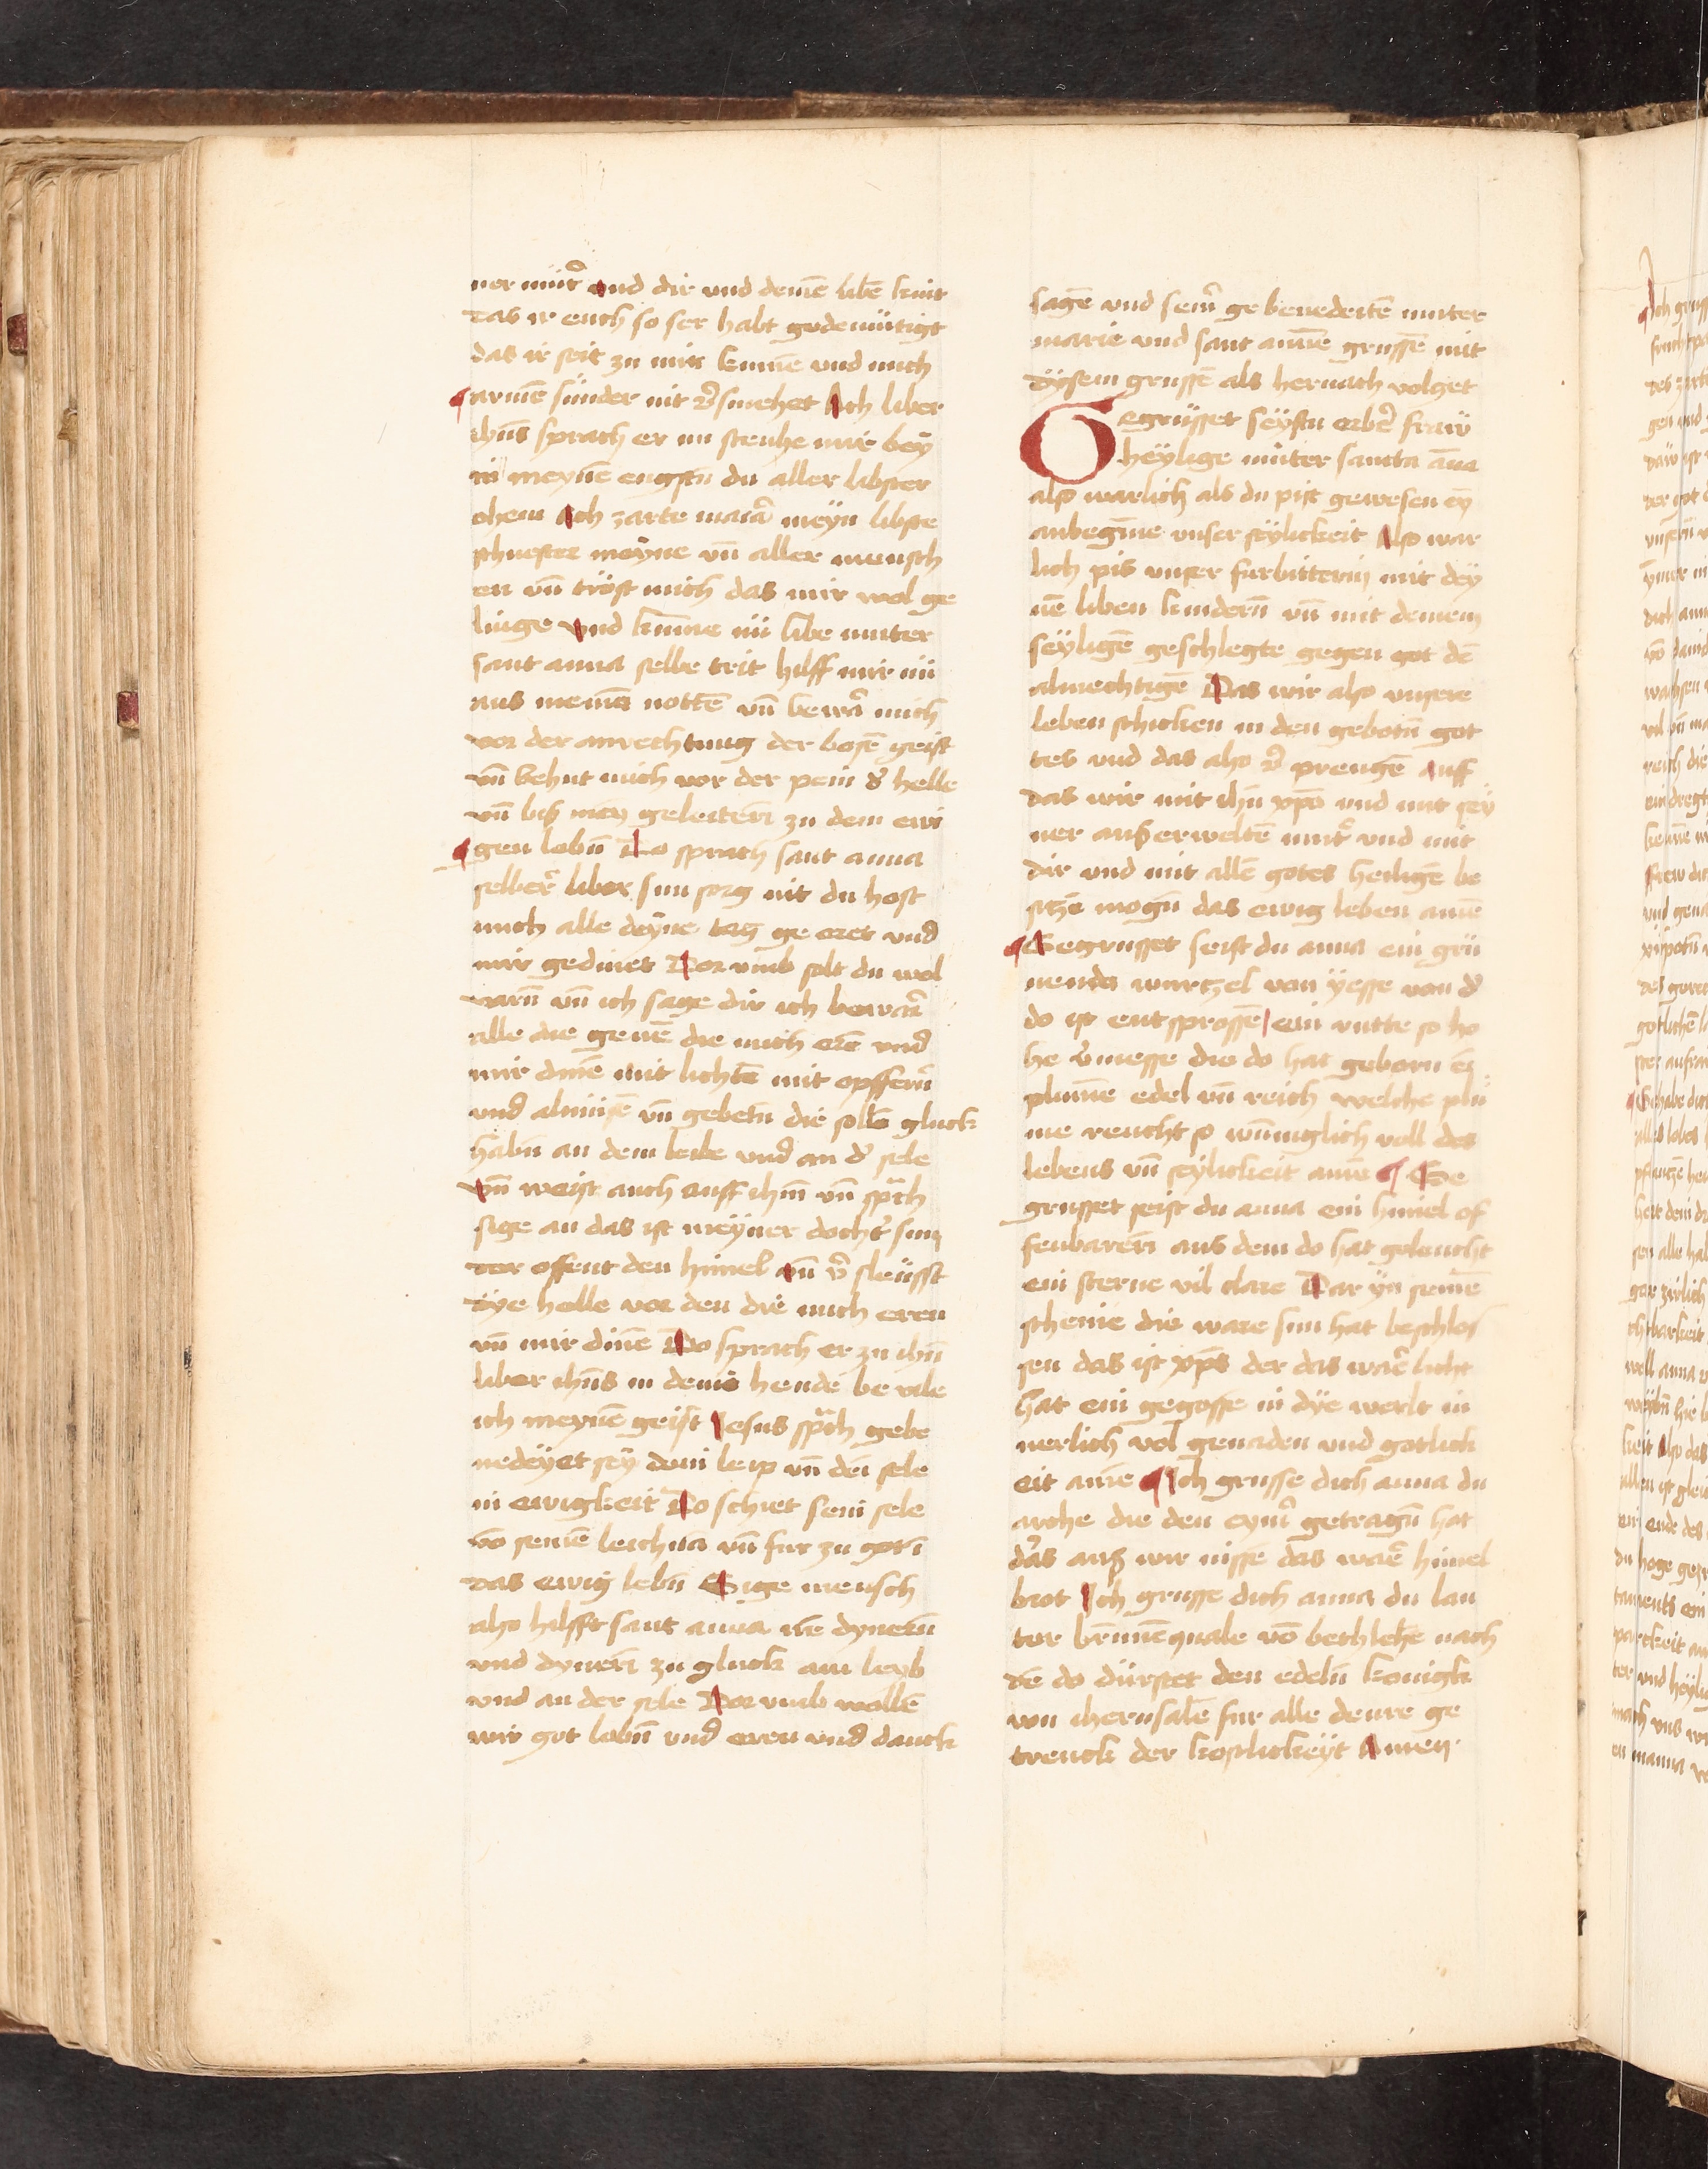 ner mut̉ vnd dir vnd deinē libē kint
das ir euch so ser habt gedemütigt
das ir seit zu mir kumē vnd mich
¶ armē sünder nit v̉smehet Ach liber
ihūs sprach er nu stenhe mir bey
in meynē engstn du aller libster
ohem Ach zarte maria meyn libste
schuester meyne vn̄ aller mensch
en vn̄ tröst mich das mir wol ge
linge vnd kūme nü libe muter
sant anna selbe trit hilff mir nü
aus meinē nottē vn̄ bewar mich
vor der anvechtung der bosē geist
vn̄ behut mich vor der pein d̉ helle
vn̄ bis mey geleiterī zu dem ewi
¶ gen lebn̄ Do sprach sant anna
selber̉ liber sun sorg nit du host
mich alle deyne tag ge eret vnd
mir gedinet Dor vmb solt du wol
varn̄ vn̄ ich sage dir ich bewar
alle die genē die mich erē vnd
mir dinē mit lichtē mit opffern̄
vnd almüsē vn̄ gebetn̄ die sollē gluck
habn̄ an dem leibe vnd an d̉ sele
Vn̄ weist auch auff ihm̄ vn̄ sprach
sige an das ist meyner docht̉ sun
der offent den himel vn̄ v̉sleüsst
dye helle vor den die mich eren
vn̄ mir dinē Do sprach er zu ihū
liber ihūs in deine hende be vile
ich meynē geist Jesus sprach gebe
nedeyet sey dein leip vn̄ dei sele
in ewigkeit Do schiet sein sele
vō seinē leichnā vn̄ fur zu got ī
das ewig lebn̄ Sige mensch
also hilfft sant anna irē dynern̄
vnd dynerī zu gluck am leyb
vnd an der sele Dor vmb wollē
wir got lobn̄ vnd eren vnd danck
sagē vnd sein̉ ge benedeitē muter
marie vnd sant annē grussē mit
dysem grussē als hernach volget
Gegrüsset seystu erber̉ fraw
heylige müter sancta āna
also warlich als du pist gewesen ey
anbegīne vnser seylickeit Also war
lich pis vnser furbitterin mit dey
nē liben kindern̄ vn̄ mit deinem
seyligē geschlegte gegen got dē
almechtigē Das wir also vnsere
leben schicken in den gebotn̄ got
tes vnd das also v̉ prengē auff
das wir mit ihū xp̄o vnd mit sey
ner auß erweltē mut̉ vnd mit
dir vnd mit allē gotes heiligē be
sitzē mogn̄ das ewig leben amē
¶ Gegrusset seist du anna ein grü
nende wurtzel von yesse von d̉
do ist entsprossē ein rutte so ho
he v̉messe die do hat geborn eī
plumē edel vn̄ reich welche plü
me reucht so wūniglich voll des
lebens vn̄ seylickeit amē ¶ Ge
grusset seist du anna ein himel of
fenbarerī aus dem do hat geleucht
ein sterne vil clare Dar yn seinē
scheine die ware sun hat beschlos
sen das ist xp̄s der das warē licht
hat ein gegosse in dye werlt in
nerlich vol genaden vnd gotlick
eit amē ¶ Ich grusse dich anna du
arche die den eym̉ getragn̄ hat
das auß wir nissē das warē himel
brot Ich grusse dich anna du lau
ter brūnē quale vō bethlehē nach
dē do dürstet den edeln̄ konigk
von iherusalē fur alle deure ge
trenck der kostlickeyt Amen